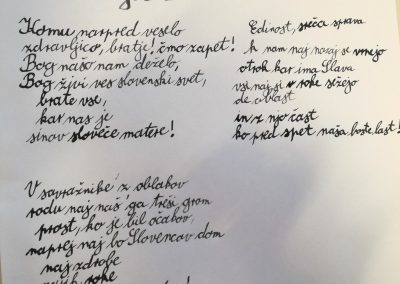 Komu narpred veselo
zdravljico, bratje! čmo zapet'!
Bog našo nam deželo,
Bog živi ves slovenski svet,
brate vse,
kar nas je
sinov sloveče matere!
V sovražnike 'z oblakov
rodu naj naš'ga treši grom
prost, ko je bil očakov,
naprej naj bo Slovencov dom
naj zdrobe
njih roke
Edinost, sreča, sprava
k nam naj nazaj se vrnejo
otrok kar ima Slava
vsi naj si v roke sežejo
de oblast
in z njo čast
ko pred spet naša boste last!